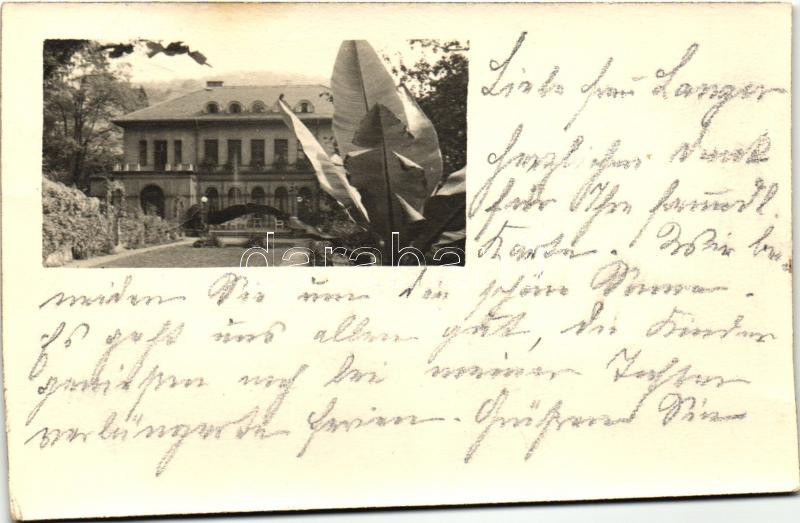 Liebe Frau Langer
herzlichen Dank
für Ihre freundl.
Karte. Wir be-
neiden Sie um die schöne Sonne.
Es geht uns allen gut, die Kinder
genießen noch bei meiner Tochter
verlängerte Ferien. Grüßen Sie
darabanth